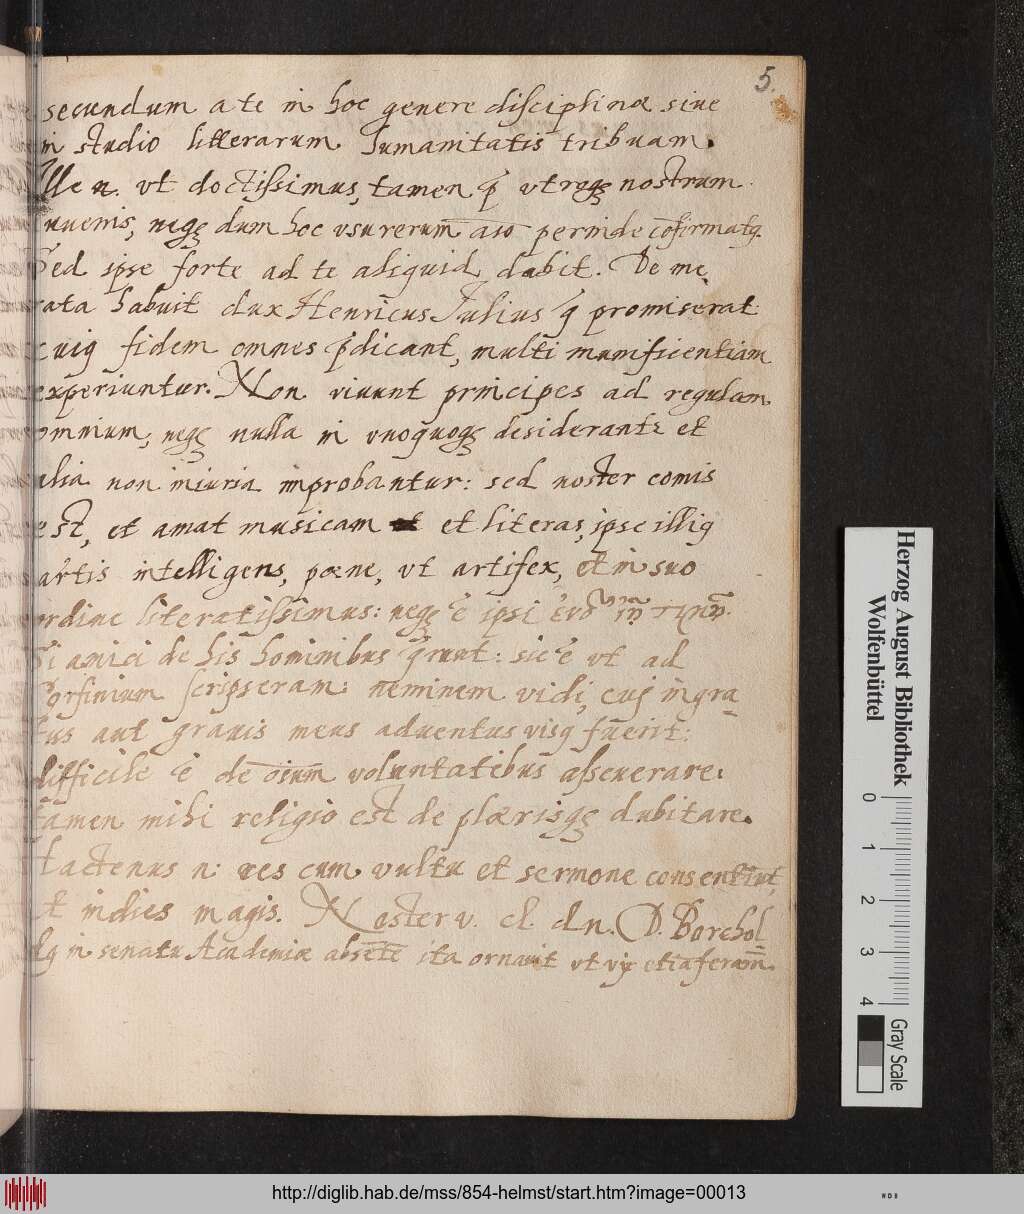 5.
secundum a te in hoc genere disciplinæ siue
in studio litterarum humanitatis tribuam.
Ille n. vt doctissimus, tamen vtrqȝ nostrum
iuuenis, neqȝ dum hoc usu rerum aīo perinde cōfirmatq.
Sed ipse forte ad te aliquid dabit. De me
rata habuit dux Henricus Julius q promiserat
cuiq fidem omnes p̄dicant, multi munificentiam
experiuntur. Non viuunt principes ad regulam
omnium, neqȝ nulla in vnoquoqȝ desiderantr et
alia non iniuria improbantur: sed noster comis
est, et amat musicam et literas, ipse illiq
artis intelligens, pœne, vt artifex, et in suo
ordine literatissimus: neqȝ ē ipsi
Si amici de his hominibus q̄runt: sic ē vt ad
Corfinium scripseram: neminem vidi, cuj ingra
tus aut grauis meus aduentus visq fuerit:
difficile ē de oīum voluntatibus asseuerare:
tamen mihi religio est de plærisqȝ dubitare.
Hactenus n: res cum vultu et sermone consentiūt,
et indies magis. Noster v. cl. dn. D. Borchol
dq in senatu Academiæ absētē ita ornauit vt vix etiā ferām.
Herzog August Bibliothek
Wolfenbüttel
0 1 2 3 4
Gray Scale
http://diglib.hab.de/mss/854-helmst/start.htm?image=00013